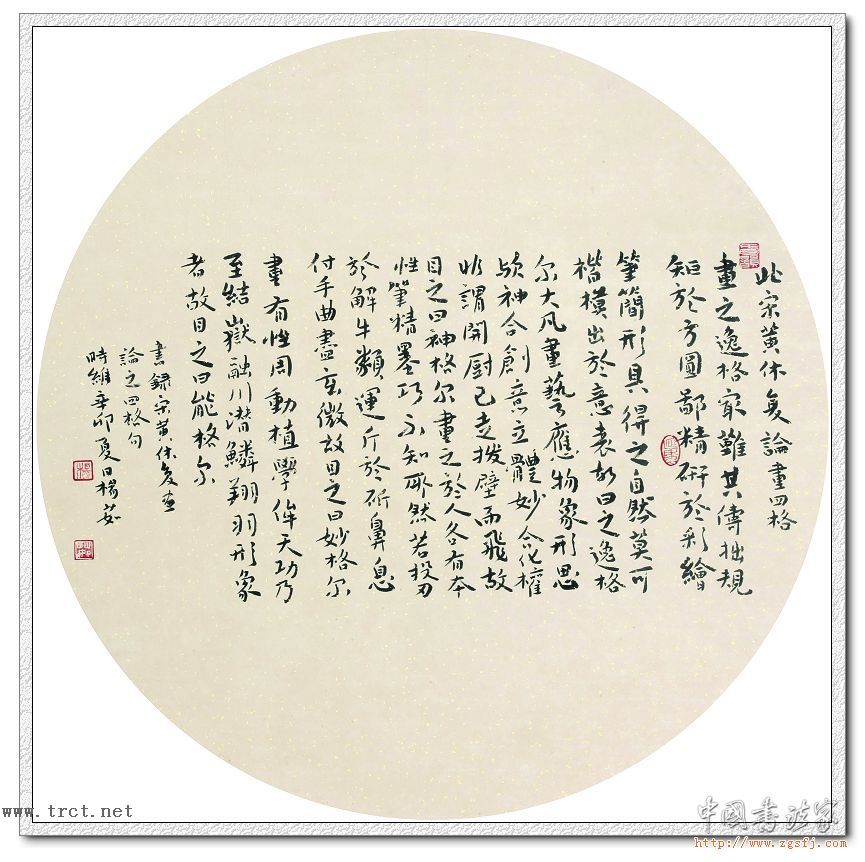 北宋黄休复論畫四格
畫之逸格冣難其儔拙規
矩於方圓鄙精研於彩繪
筆簡形具得之自然莫可
楷模出於意表故曰之逸格
尔大凡畫藝應物象形思
與神合創意立體妙合化權
非謂開厨已走拨壁而飛故
目之曰神格尔畫之於人各有本
性筆精墨巧不知所然若投刃
於解牛類運斤於斫鼻息
付手曲盡玄微故目之曰妙格尔
畫有性周動植學侔天功乃
至結嶽融川潜鱗翔羽形象
者故目之曰能格尔
書録宋黄休复畫
論之四格句
時維辛卯夏日楊茹
www.trct.net
中國書法家
http://www.zgsfj.com